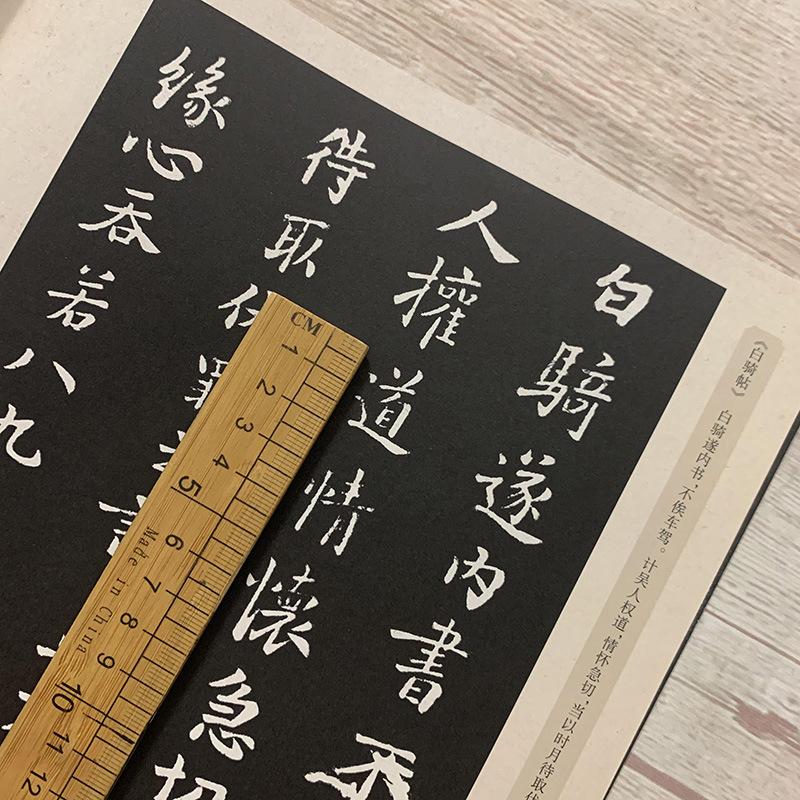 《白骑帖》 白骑遂内书，不俟车驾。计吴人权道，情怀急切，当以时月待取伏
白騎遂内書不
人權道情懷急切
待取
緣心吞若八九
CM 1 2 3 4 5 6 7 8 9 10 11 12
Made in China